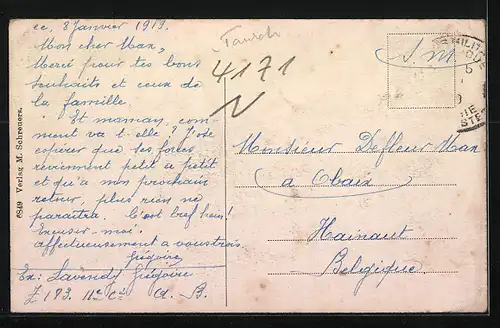 ce, 8 Janvier 1919.
Mon cher Max,
Merci pour tes bons
souhaits et ceux de
la famille.
Et maman, com-
ment va t-elle? J'ose
espérer que ses forces
reviennent petit à petit
et qu'à mon prochain
retour, plus rien ne
paraîtra. C'est bref hein!
Excuser-moi.
affectueusement à vous trois.
Grégoire
Ex: Lavendy Grégoire
Z 183. 11e Cie A. B.
6849 Verlag M. Schreuers.
Tausch
4171
S. M.
MILIT
Monsieur Defleur Max
à Obaix
Hainaut
Belgique